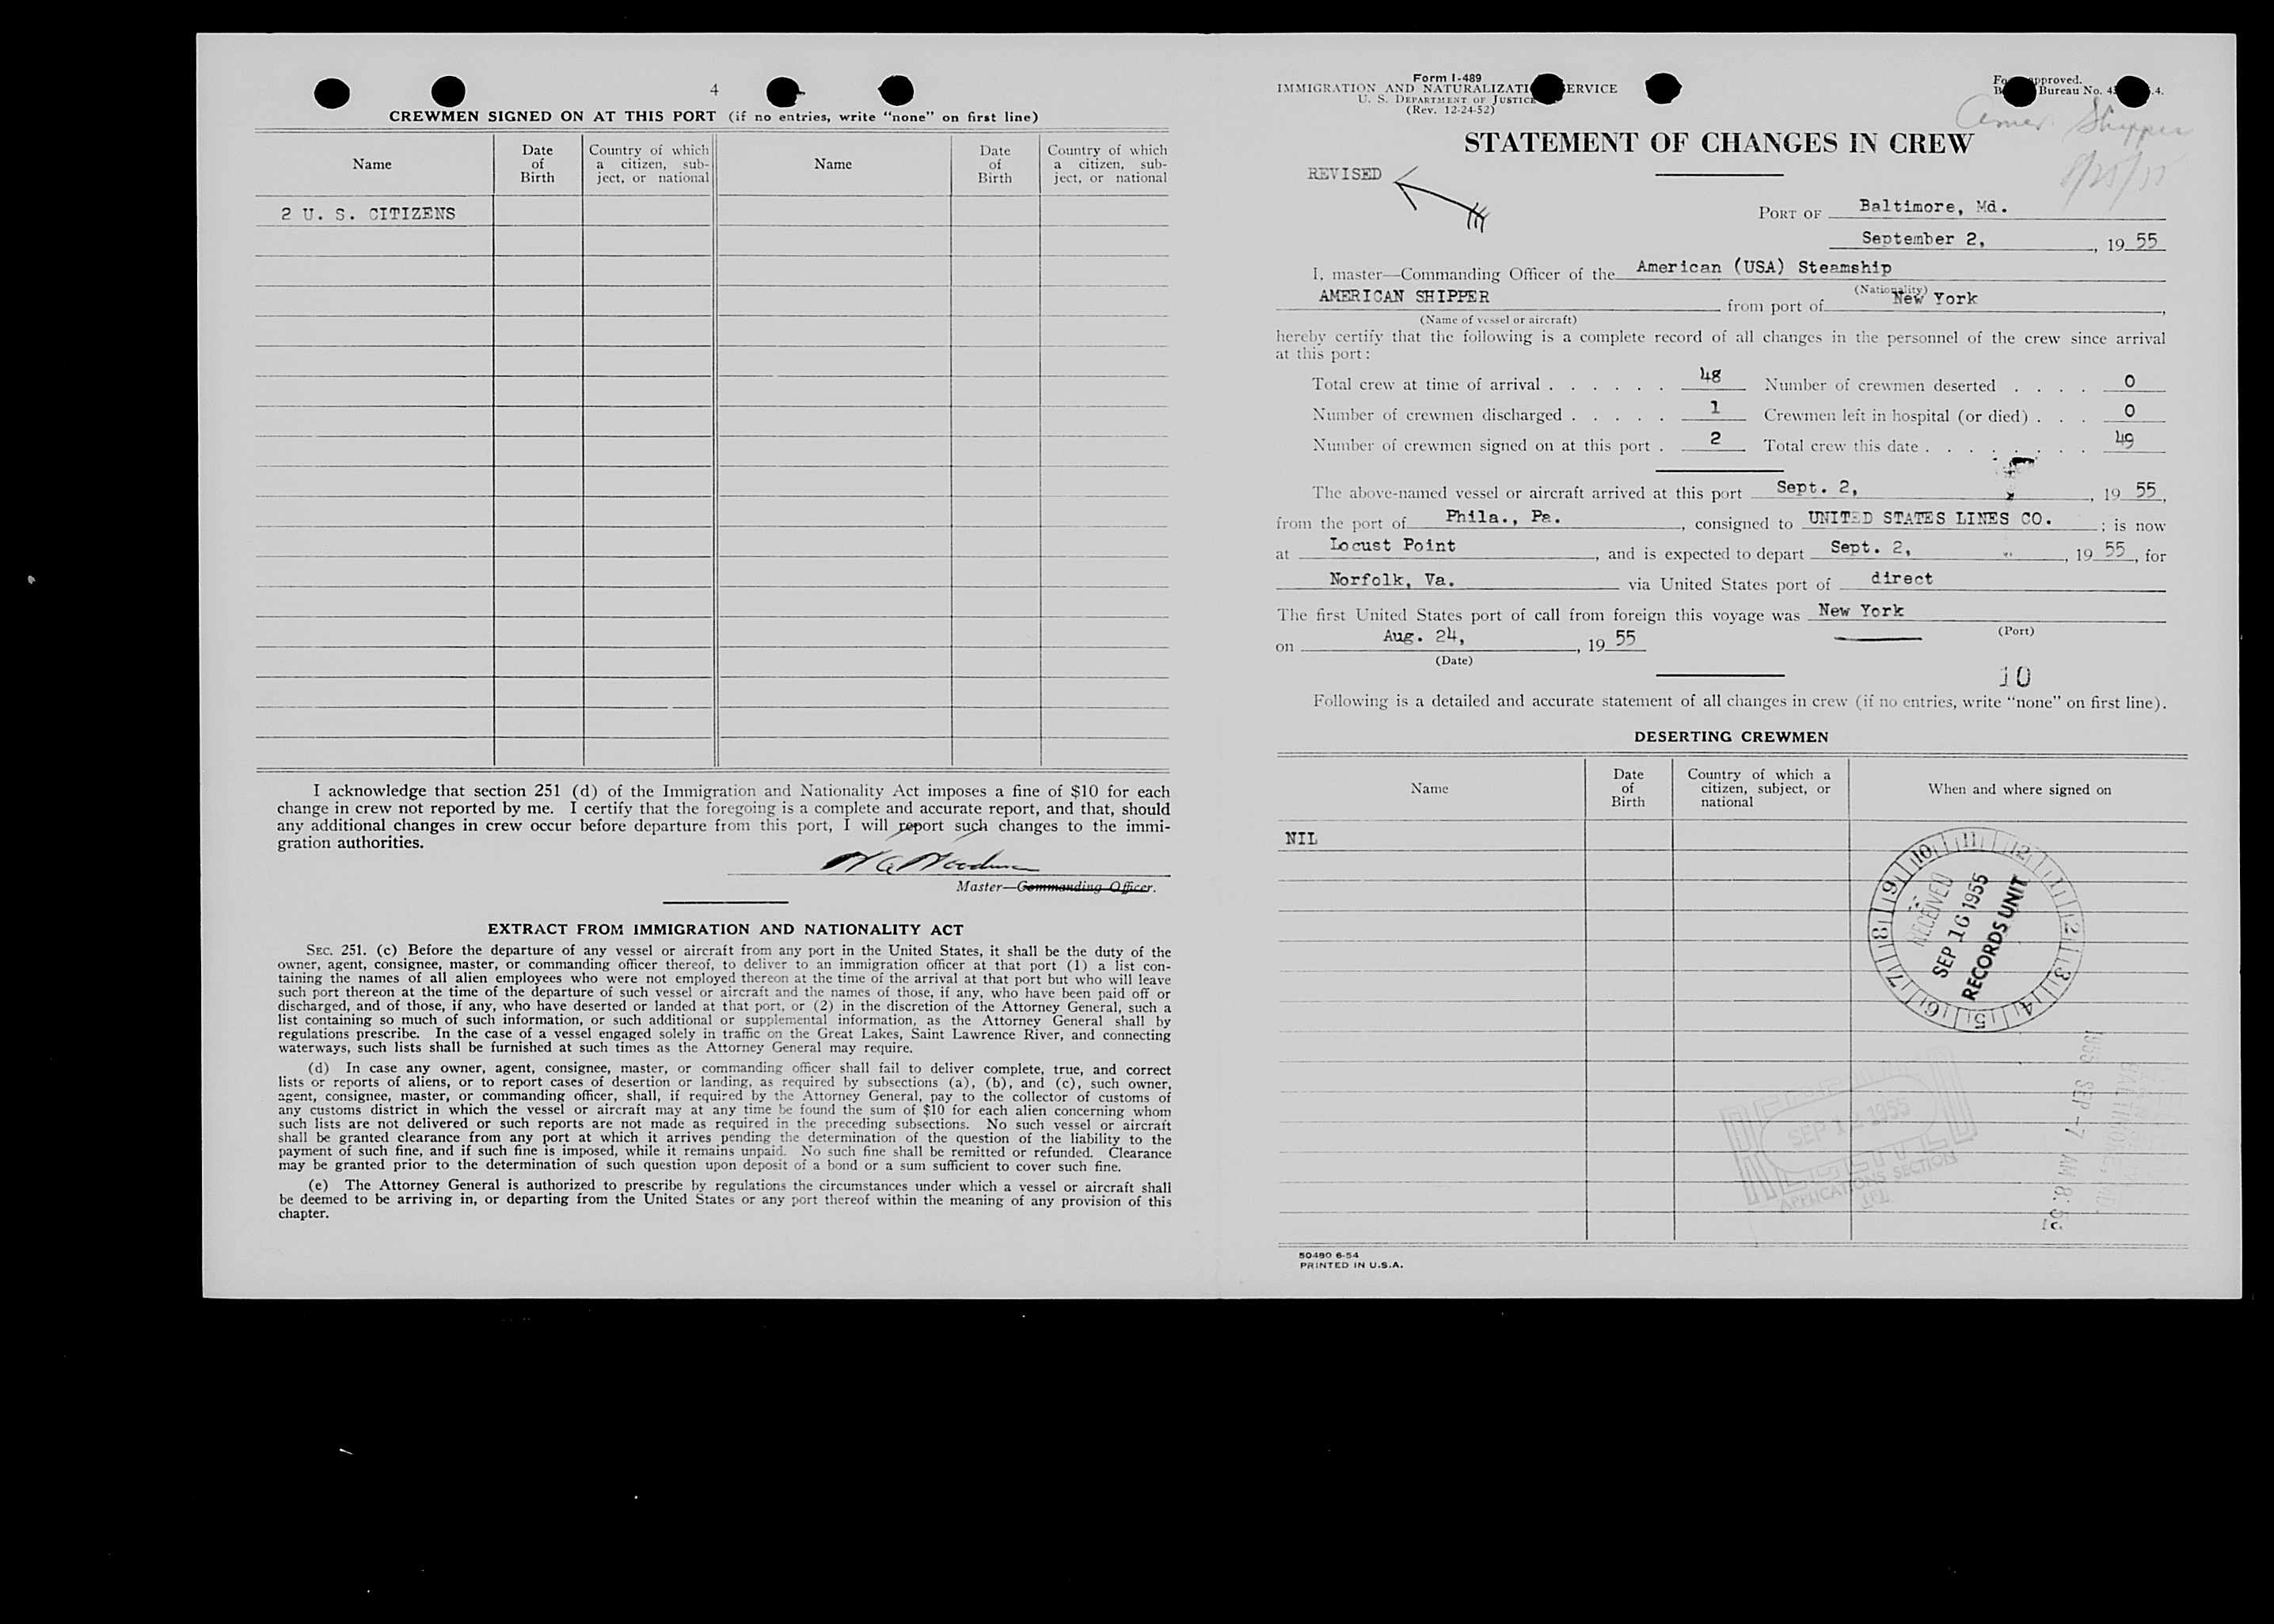 4
CREWMEN SIGNED ON AT THIS PORT (if no entries, write “none” on first line)
Name
Date of Birth
Country of which a citizen, sub-ject, or national
Name
Date of Birth
Country of which a citizen, sub-ject, or national
2 U. S. CITIZENS
I acknowledge that section 251 (d) of the Immigration and Nationality Act imposes a fine of $10 for each
change in crew not reported by me. I certify that the foregoing is a complete and accurate report, and that, should
any additional changes in crew occur before departure from this port, I will report such changes to the immi-
gration authorities.
Master—Commanding Officer.
EXTRACT FROM IMMIGRATION AND NATIONALITY ACT
SEC. 251. (c) Before the departure of any vessel or aircraft from any port in the United States, it shall be the duty of the
owner, agent, consignee, master, or commanding officer thereof, to deliver to an immigration officer at that port (1) a list con-
taining the names of all alien employees who were not employed thereon at the time of the arrival at that port but who will leave
such port thereon at the time of the departure of such vessel or aircraft and the names of those, if any, who have been paid off or
discharged, and of those, if any, who have deserted or landed at that port, or (2) in the discretion of the Attorney General, such a
list containing so much of such information, or such additional or supplemental information, as the Attorney General shall by
regulations prescribe. In the case of a vessel engaged solely in traffic on the Great Lakes, Saint Lawrence River, and connecting
waterways, such lists shall be furnished at such times as the Attorney General may require.
(d) In case any owner, agent, consignee, master, or commanding officer shall fail to deliver complete, true, and correct
lists or reports of aliens, or to report cases of desertion or landing, as required by subsections (a), (b), and (c), such owner,
agent, consignee, master, or commanding officer, shall, if required by the Attorney General, pay to the collector of customs of
any customs district in which the vessel or aircraft may at any time be found the sum of $10 for each alien concerning whom
such lists are not delivered or such reports are not made as required in the preceding subsections. No such vessel or aircraft
shall be granted clearance from any port at which it arrives pending the determination of the question of the liability to the
payment of such fine, and if such fine is imposed, while it remains unpaid. No such fine shall be remitted or refunded. Clearance
may be granted prior to the determination of such question upon deposit of a bond or a sum sufficient to cover such fine.
(e) The Attorney General is authorized to prescribe by regulations the circumstances under which a vessel or aircraft shall
be deemed to be arriving in, or departing from the United States or any port thereof within the meaning of any provision of this
chapter.
Form I-489
IMMIGRATION AND NATURALIZATI ERVICE
U. S. DEPARTMENT OF JUSTICE
(Rev. 12-24-52)
pproved.
Bureau No. 4 .4.
Amer. Shipper
8/25/55
STATEMENT OF CHANGES IN CREW
REVISED
PORT OF Baltimore, Md.
September 2, , 19 55
I, master—Commanding Officer of the American (USA) Steamship
(Nationality)
AMERICAN SHIPPER from port of New York ,
(Name of vessel or aircraft)
hereby certify that the following is a complete record of all changes in the personnel of the crew since arrival
at this port:
Total crew at time of arrival . . . . . . 48 Number of crewmen deserted . . . . 0
Number of crewmen discharged . . . . . 1 Crewmen left in hospital (or died) . . . 0
Number of crewmen signed on at this port . 2 Total crew this date . . . . . . . . 49
The above-named vessel or aircraft arrived at this port Sept. 2, , 19 55,
from the port of Phila., Pa. , consigned to UNITED STATES LINES CO. ; is now
at Locust Point , and is expected to depart Sept. 2, , 19 55, for
Norfolk, Va. via United States port of direct
The first United States port of call from foreign this voyage was New York
(Port)
on Aug. 24, , 19 55
(Date)
10
Following is a detailed and accurate statement of all changes in crew (if no entries, write “none” on first line).
DESERTING CREWMEN
Name
Date of Birth
Country of which a citizen, subject, or national
When and where signed on
NIL
10 11 12 1 2 3 4 5 6 7 8 9
RECEIVED
SEP 16 1955
RECORDS UNIT
RECEIVED
SEP 12 1955
APPLICATIONS SECTION
1955 SEP -7 AM 8:
BALTIMORE, MD.
50480 6-54
PRINTED IN U.S.A.